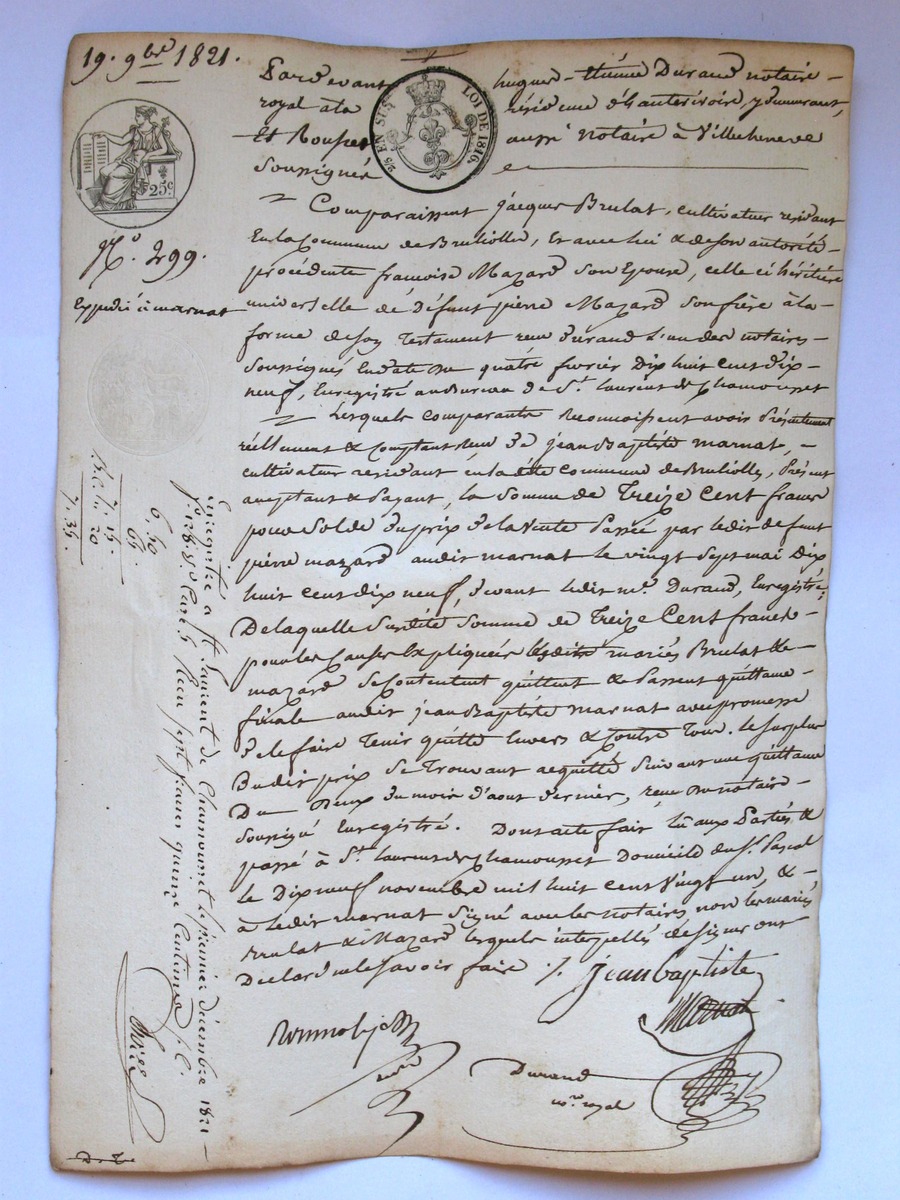 19. 9bre 1821.
Pardevant hugues-Etienne Durand notaire
royal à la résidence d'hauterivoire, y demeurant,
Et aussi notaire à Villecheneve
Soussignés
25 EN SUS LOI DE 1816.
25c
No. 299.
Expédié à marnat
Comparaissent jacques Brulat, cultivateur residant
En la Commune de Bruliolles, Et avec lui & de son autorité
procédente francoise Mazard Son Epouse, celle ci héritière
universelle de Défunt pierre Mazard Son frère à la
forme de son Testament reçu Durand L'un des notaires
Soussignés En date du quatre fevrier Dix huit cent Dix
neuf, Enregistré au Bureau de St. laurent de Chamousset
Lesquels comparants Reconnoissent avoir Présentement
réellement & Comptant Reçu De jean Baptiste marnat,
cultivateur residant en la dite Commune de Brulliolles, Présent
acceptant & Payant, la Somme de Treize Cent francs
pour Solde Du prix De la Vente Passée par ledit defunt
pierre mazard audit marnat le vingt Sept mai Dix
huit cent dix neuf, Devant ledit me. Durand, Enregistré.
De laquelle Susdite Somme de Treize Cent francs
pour les Causes Expliquées lesdits mariés Brulat &
mazard Se Contentent quittent & Passent quittance
finale audit jean Baptiste marnat avec promesse
De le faire Tenir quitte Envers & Contre Tous. le Surplus
Dudit prix Se Trouvant acquitté Suivant une quittance
Du Deux Du mois D'aout Dernier, reçue Du notaire
Soussigné Enregistré. Dont acte fait lu aux Parties &
passé à St. laurent de Chamousset Domicile du Sr. Pascal
le Dix neuf novembre mil huit cent Vingt un, &
a ledit marnat Signé avec les notaires, non les mariés
Brulat & Mazard lesquels interpellés de Signer ont
Declaré ne le Savoir faire ./. jean baptiste
Marnat
Durand
nore royal
Enregistré à St Laurent de Chamousset le premier décembre 1821
fo. 128 Vo. Car. 5 Reçu Sept francs quinze Centimes
6. 50
65
7. 15
20
7. 35